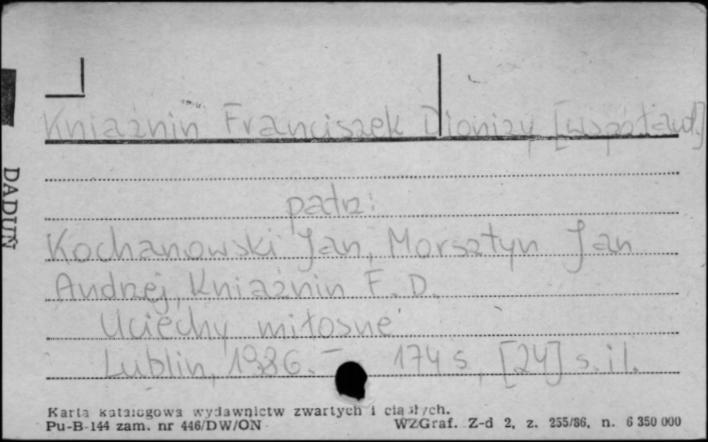 Kniaźnin Franciszek Dionizy [współaut.]
patrz:
Kochanowski Jan, Morsztyn Jan
Andrzej, Kniaźnin F. D.
Uciechy miłosne
Lublin, 1986. – 174 s, [24] s. il.
Karta katalogowa wydawnictw zwartych i ciągłych.
Pu-B-144 zam. nr 446/DW/ON
WZGraf. Z-d 2, z. 255/86, n. 6 350 000
DADUŃ